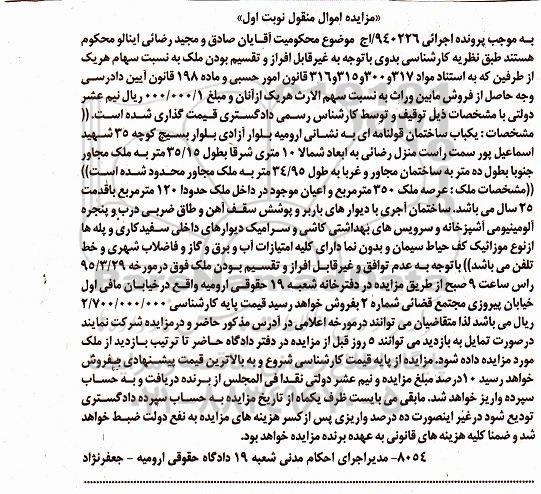 «مزایده اموال منقول نوبت اول»
به موجب پرونده اجرائی ۹۴۰۲۲۶/اج موضوع محکومیت آقایان صادق و مجید رضائی اینالو محکوم
هستند طبق نظریه کارشناسی بدوی باتوجه به غیرقابل افراز و تقسیم بودن ملک به نسبت سهام هریک
از طرفین که به استناد مواد ۳۱۷و۳۰۰و۳۱۵و۳۱۶ قانون امور حسبی و ماده ۱۹۸ قانون آیین دادرسی
وجه حاصل از فروش مابین وراث به نسبت سهم الارث هریک ازآنان و مبلغ ۰۰۰/۰۰۰/۱ ریال نیم عشر
دولتی با مشخصات ذیل توقیف و توسط کارشناس رسمی دادگستری قیمت گذاری شده است. ((
مشخصات : یکباب ساختمان قولنامه ای به نشانی ارومیه بلوار آزادی بلوار بسیج کوچه ۳۵ شهید
اسماعیل پور سمت راست منزل رضائی به ابعاد شمالا ۱۰ متری شرقا بطول ۳۵/۱۵ متر به ملک مجاور
جنوبا بطول ده متر به ساختمان مجاور و غربا به طول ۳۴/۹۵ متر به ملک مجاور محدود شده است))
((مشخصات ملک : عرصه ملک ۳۵۰ مترمربع و اعیان موجود در داخل ملک حدودا ۱۲۰ مترمربع باقدمت
۲۵ سال می باشد. ساختمان آجری با دیوار های باربر و پوشش سقف آهن و طاق ضربی درب و پنجره
آلومینیومی آشپزخانه و سرویس های بهداشتی کاشی و سرامیک دیوارهای داخلی سفیدکاری و پله ها
ازنوع موزائیک کف حیاط سیمان و بدون نما دارای کلیه امتیازات آب و برق و گاز و فاضلاب شهری و خط
تلفن می باشد)) باتوجه به عدم توافق و غیرقابل افراز و تقسیم بودن ملک فوق درمورخه ۹۵/۳/۲۹
راس ساعت ۹ صبح از طریق مزایده در دفترخانه شعبه ۱۹ حقوقی ارومیه واقع در خیابان مافی اول
خیابان پیروزی مجتمع قضائی شماره ۲ بفروش خواهد رسید قیمت پایه کارشناسی ۲/۷۰۰/۰۰۰/۰۰۰
ریال می باشد لذا متقاضیان می توانند درمورخه اعلامی در آدرس مذکور حاضر و درمزایده شرکت نمایند
درصورت تمایل به بازدید می توانند ۵ روز قبل از مزایده در دفتر دادگاه حاضر تا ترتیب بازدید از ملک
مورد مزایده داده شود. مزایده از پایه قیمت کارشناسی شروع و به بالاترین قیمت پیشنهادی بفروش
خواهد رسید ۱۰درصد مبلغ مزایده و نیم عشر دولتی نقدا فی المجلس از برنده دریافت و به حساب
سپرده واریز خواهد شد. مابقی می بایست ظرف یکماه از تاریخ مزایده به حساب سپرده دادگستری
تودیع شود درغیر اینصورت ده درصد واریزی پس ازکسر هزینه های مزایده به نفع دولت ضبط خواهد
شد و ضمنا کلیه هزینه های قانونی به عهده برنده مزایده خواهد بود.
۸۰۵۴- مدیراجرای احکام مدنی شعبه ۱۹ دادگاه حقوقی ارومیه - جعفرنژاد